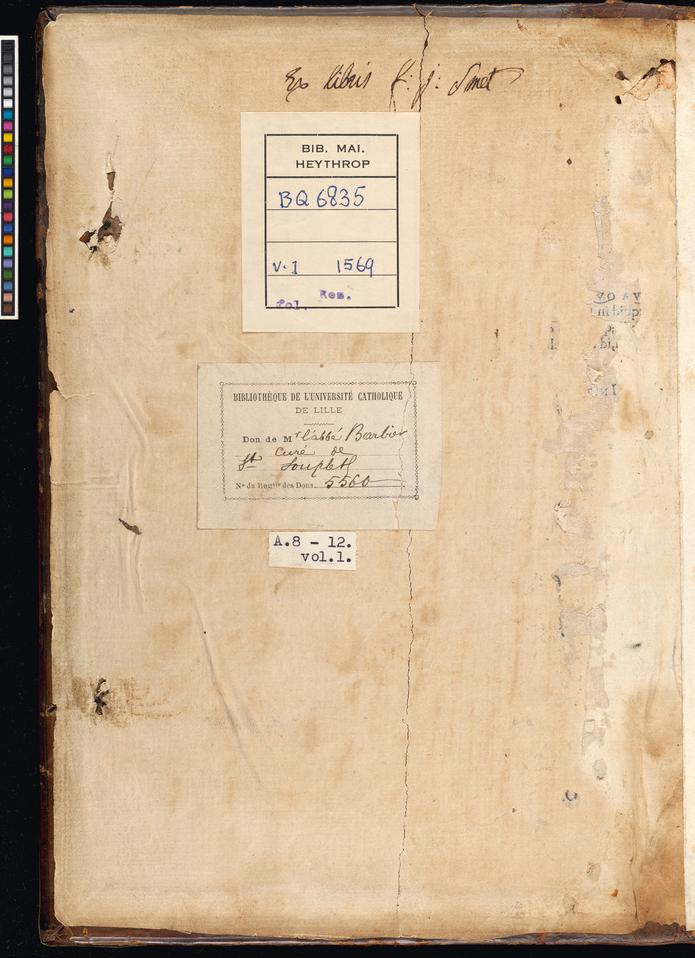 Ex libris f: j: Smet
BIB. MAI.
HEYTHROP
BQ 6835
v. I 1569
Res.
fol.
BIBLIOTHÈQUE DE L'UNIVERSITÉ CATHOLIQUE
DE LILLE
Don de Mr l'abbé Barbier
curé de
St Souplet
No du Regtre des Dons. 5560
A.8 - 12.
vol.1.